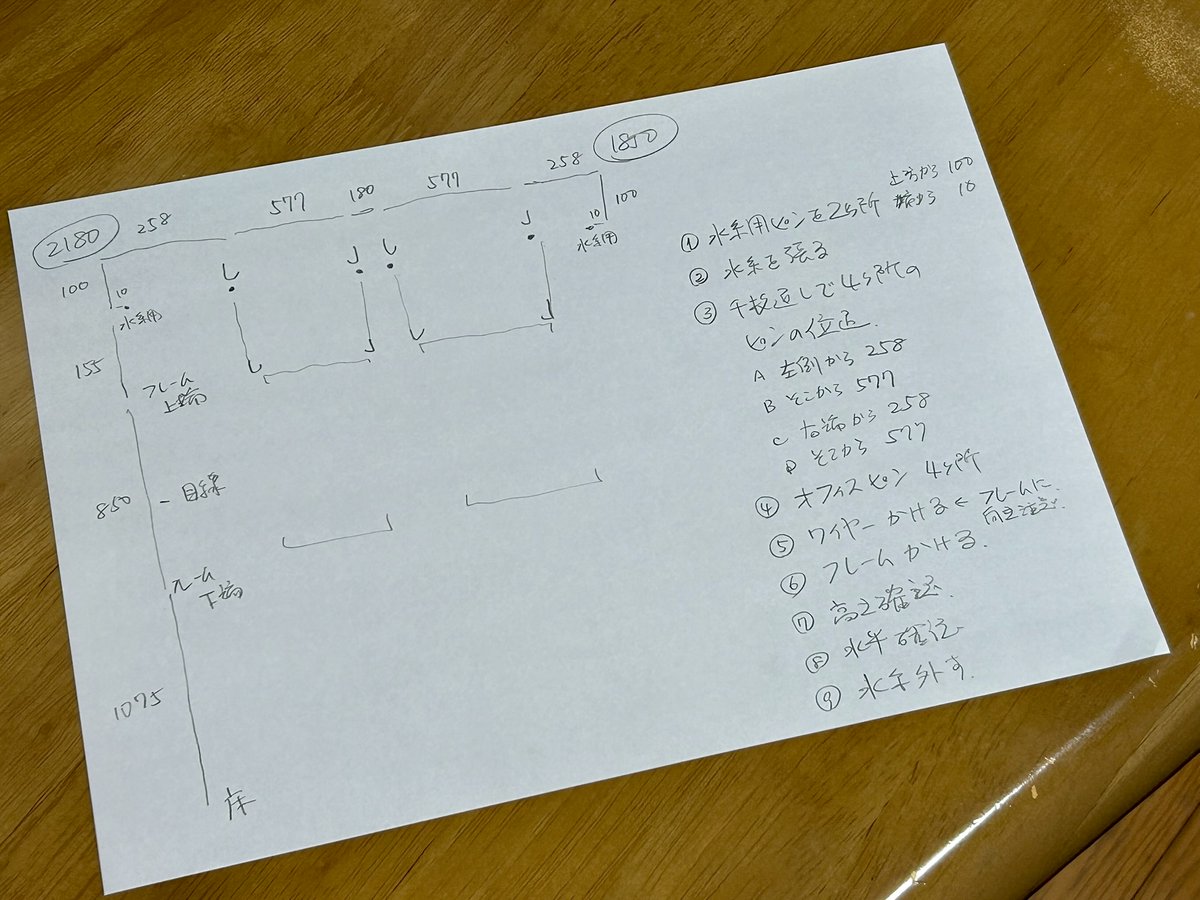 2180
258
577
180
577
258
1850
100
10
水糸用
155
フレーム
上端
850
目線
フレーム
下端
1075
床
100
10
水糸用
① 水糸用ピンを2ヶ所 上端から 100
端から 10
② 水糸を張る
③ 千枚通しで4ヶ所の
ピンの位置.
A 左側から 258
B そこから 577
C 右端から 258
D そこから 577
④ オフィスピン 4ヶ所
⑤ ワイヤーかける ← フレームに.
向き注意.
⑥ フレームかける.
⑦ 高さ確認.
⑧ 水平確認
⑨ 水糸外す.